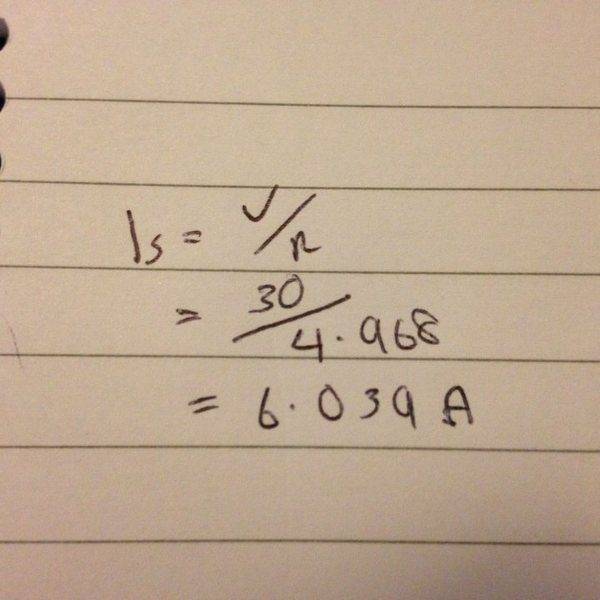 Is = V/R
= 30/4.968
= 6.039 A